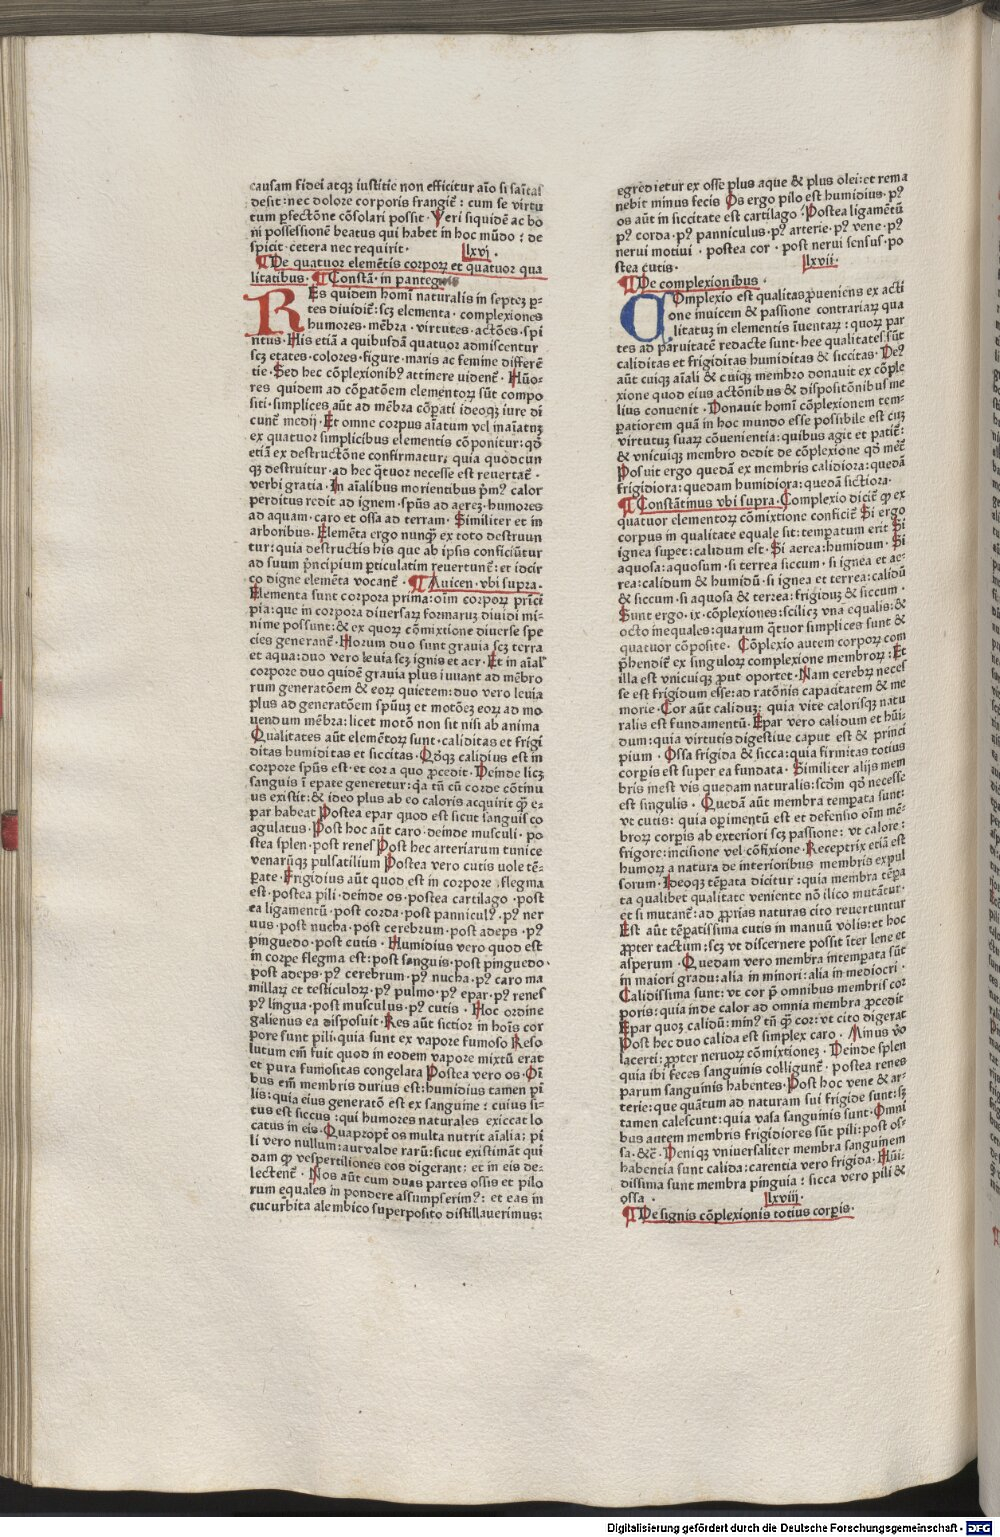 causam fidei atqꝫ iustitie non efficitur aĩo si saĩtas
desit: nec dolore corporis frangit᷑: cum se virtu
tum ꝑfectõne cõsolari possit. Veri siquidẽ ac bo
ni possessionẽ beatus qui habet in hoc mũdo: de
spicit cetera nec requirit. lxvi.
De quatuor elemẽtis corporꝝ et quatuor qua
litatibus. Constã. in panteg
REs quidem homĩ naturalis in septeꝫ ꝑ-
tes diuidit᷑: scꝫ elementa. complexiones
humores. mẽbra. virtutes. actões. spi
ritus. His etiã a quibusdã quatuor admiscentur
scꝫ etates. colores. figure. maris ac femine differẽ
tie. Sed hec cõplexionibꝰ attinere vident᷑. Hũo-
res quidem ad cõpatõem elementorꝝ sũt compo
siti. simplices aũt ad mẽbra cõpati ideoqꝫ iure di
cunt᷑ medij. Et omne corpus aĩatum vel inaĩatuꝫ
ex quatuor simplicibus elementis cõponitur: qđ
etiã ex destructõne confirmatur, quia quodcun
qꝫ destruitur. ad hec q̃tuor necesse est reuertat᷑.
verbi gratia. In aĩalibus morientibus pͥmꝰ calor
perditus redit ad ignem. spũs ad aereꝫ. humores
ad aquam. caro et ossa ad terram. Similiter et in
arboribus. Elemẽta ergo nunqꝫ ex toto destruun
tur: quia destructis his que ab ipsis conficiũtur
ad suum pͥncipium ꝑticulatim reuertunt᷑: et idcir
co digne elemẽta vocant᷑. Auicen. vbi supra.
Elementa sunt corpora prima: oĩm corporꝝ prĩci
pia: que in corpora diuersarꝝ formaruꝫ diuidi mi-
nime possunt: & ex quorꝝ cõmixtione diuerse spe
cies generant᷑. Horum duo sunt grauia scꝫ terra
et aqua: duo vero leuia scꝫ ignis et aer. Et in aĩal'
corpore duo quidẽ grauia plus iuuant ad mẽbro
rum generatõem & eorꝝ quietem: duo vero leuia
plus ad generatõem spũuꝫ et motõeꝫ eorꝝ ad mo
uendum mẽbra: licet motõ non sit nisi ab anima
Qualitates aũt elemẽtorꝝ sunt. caliditas et frigi
ditas humiditas et siccitas. Qđqꝫ calidius est in
corpore spũs est. et cor a quo ꝓcedit. Deinde licꝫ
sanguis ĩ epate generetur: q̃a tñ cũ corde cõtinu
us existit: & ideo plus ab eo caloris acquirit q̃ e-
par habeat Postea epar quod est sicut sanguis co
agulatus. Post hoc aũt caro. deinde musculi. po
stea splen. post renes Post hec arteriarum tunice
venarũqꝫ pulsatilium Postea vero cutis vole tẽ-
ꝑate. Frigidius aũt quod est in corpore. flegma
est. postea pili. deinde os. postea cartilago. post
ea ligamentũ. post corda. post panniculꝰ. pꝰ ner
uus. post nucha. post cerebrum. post adeps. pꝰ
pinguedo. post cutis. Humidius vero quod est
in corꝑe flegma est: post sanguis. post pinguedo.
post adeps. pꝰ cerebrum. pꝰ nucha. pꝰ caro ma
millarꝝ et testiculorꝝ. pꝰ pulmo. pꝰ epar. pꝰ renes
pꝰ lingua. post musculus. pꝰ cutis. Hoc ordine
galienus ea disposuit. Res aũt sictior in hoĩs cor
pore sunt pili. quia sunt ex vapore fumoso Reso
lutum em̃ fuit quod in eodem vapore mixtũ erat
et pura fumositas congelata Postea vero os. Oĩ
bus em̃ membris durius est: humidius tamen pi
lis: quia eius generatõ est ex sanguine: cuius si-
tus est siccus: qui humores naturales exiccat lo
catus in eis. Quapropt᷑ os multa nutrit aĩalia: pi
li vero nullum: aut valde rarũ: sicut existimãt qui
dam ꝙ vespertiliones eos digerant: et in eis de-
lectent᷑. Nos aũt cum duas partes ossis et pilo
rum equales in pondere assumpserimꝰ: et eas in
cucurbita alembico superposito distillauerimus:
egredietur ex osse plus aque & plus olei: et rema
nebit minus fecis Os ergo pilo est humidius. pꝰ
os aũt in siccitate est cartilago. Postea ligamẽtũ
pꝰ corda. pꝰ panniculus. pꝰ arterie. pꝰ vene. pꝰ
nerui motiui. postea cor. post nerui sensus. po
stea cutis. lxvii.
De complexionibus.
COmplexio est qualitas ꝓueniens ex acti
one inuicem & passione contrariarꝝ qua
litatuꝫ in elementis ĩuentarꝝ: quorꝝ par
tes ad paruitatẽ redacte sunt. hee qualitates sũt
caliditas et frigiditas humiditas & siccitas. Deꝰ
aũt cuiqꝫ aĩali & cuiqꝫ membro donauit ex cõple
xione quod eius actõnibus & dispositõnibus me
lius conuenit. Donauit homĩ cõplexionem tem-
ꝑatiorem quã in hoc mundo esse possibile est cuꝫ
virtutuꝫ suarꝝ cõuenientia: quibus agit et patit᷑:
& vnicuiqꝫ membro dedit de cõplexione qđ meĩ
Posuit ergo quedã ex membris calidiora: quedã
frigidiora: quedam humidiora: quedã sictiora.
Constãtinus vbi supra. Complexio dicit᷑ ꝙ ex
quatuor elementorꝝ cõmixtione conficit᷑ Si ergo
corpus in qualitate equale sit: temꝑatum erit Si
ignea suꝑet: calidum est. Si aerea: humidum. Si
aquosa: aquosum. si terrea siccum. si ignea et ae-
rea: calidum & humidũ. si ignea et terrea: calidũ
& siccum. si aquosa & terrea: frigiduꝫ & siccum.
Sunt ergo. ix. cõplexiones: scilicꝫ vna equalis: &
octo inequales: quarum q̃tuor simplices sunt &
quatuor cõposite. Cõplexio autem corporꝝ com
p̃hendit᷑ ex singulorꝝ complexione membrorꝝ: Et
illa est vnicuiqꝫ ꝓut oportet. Nam cerebrꝝ neces
se est frigidum esse: ad ratõnis capacitatem & me
morie. Cor aũt caliduꝫ: quia vite calorisqꝫ natu
ralis est fundamentũ. Epar vero calidum et hũi-
dum: quia virtutis digestiue caput est & princi
pium. Ossa frigida & sicca: quia firmitas totius
corꝑis est super ea fundata. Similiter alijs mem
bris inest vis quedam naturalis: scđm qđ necesse
est singulis. Quedã aũt membra temꝑata sunt:
vt cutis: quia oꝑimentũ est et defensio oĩm mẽ-
brorꝝ corꝑis ab exteriori scꝫ passione: vt calore:
frigore: incisione vel cõfixione. Receptrix etiã est
humorꝝ a natura de interioribus membris expul
sorum. Ideoqꝫ tẽꝑata dicitur: quia membra tẽꝑa
ta qualibet qualitate veniente nõ ilico mutãtur.
et si mutant᷑: ad ꝓprias naturas cito reuertuntur
Est aũt tẽꝑatissima cutis in manuũ volis: et hoc
ꝓpter tactum: scꝫ vt discernere possit ĩter lene et
asperum. Quedam vero membra intemꝑata sũt
in maiori gradu: alia in minori: alia in mediocri.
Calidissima sunt: vt cor p̃ omnibus membris cor
poris: quia inde calor ad omnia membra ꝓcedit
Epar quoqꝫ calidũ: minꝰ tñ q̃ cor: vt cito digerat
Post hec duo calida est simplex caro. Minus ṽo
lacerti: ꝓpter neruorꝝ cõmixtioneꝫ. Deinde splen
quia ibi feces sanguinis colligunt᷑. postea renes
parum sanguinis habentes. Post hoc vene & ar-
terie: que quãtum ad naturam sui frigide sunt: sꝫ
tamen calescunt: quia vasa sanguinis sunt. Omni
bus autem membris frigidiores sũt pili: post os-
sa. &c̃. Deniqꝫ vniuersaliter membra sanguinem
habentia sunt calida: carentia vero frigida. Hũi-
dissima sunt membra pinguia: sicca vero pili &
ossa. lxviij.
De signis cõplexionis totius corꝑis.
Digitalisierung gefördert durch die Deutsche Forschungsgemeinschaft - DFG